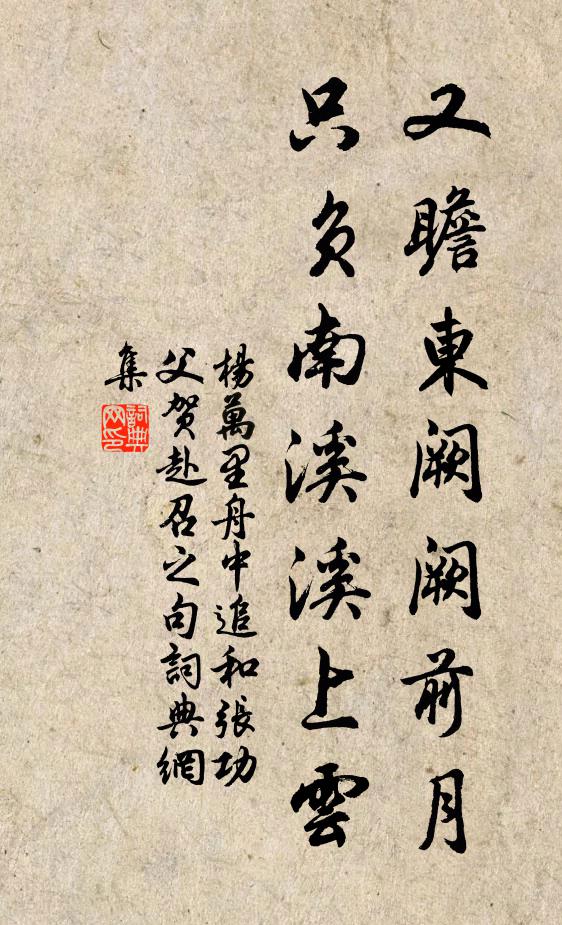 又瞻東阙阙前月
只負南溪溪上雲
楊萬里舟中追和張功
父贺赴召之句詞典網
集
詞典網印